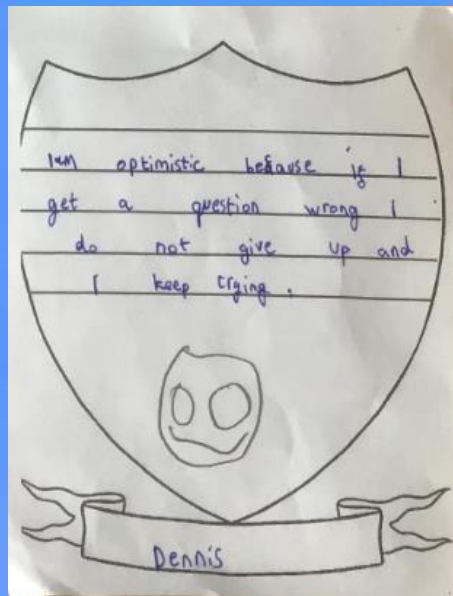 I am optimistic because if I
get a question wrong I
do not give up and
I keep trying.
Dennis